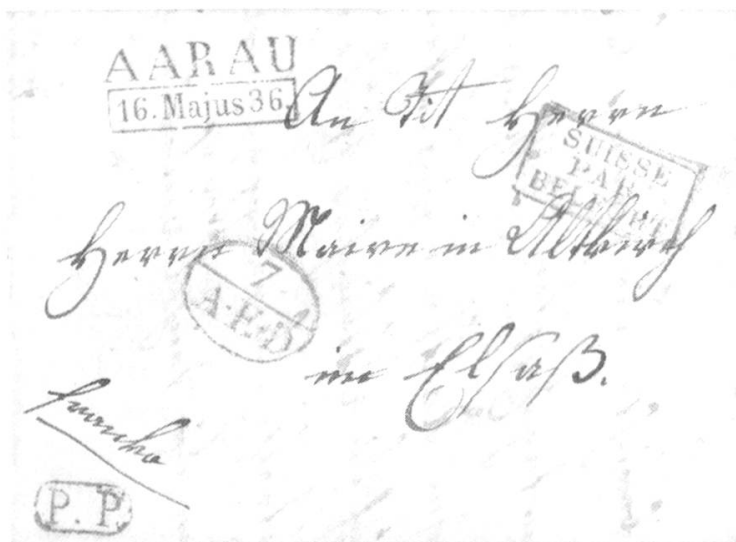 AARAU
16. Majus 36.
An Tit Herrn
SUISSE
PAR
BELFORT
Herrn Maire in Altkirch
7
A.E.D
im Elsaß.
franko
P. P.